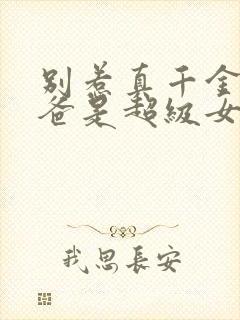 别惹真千金
爸是超级女
我思長安